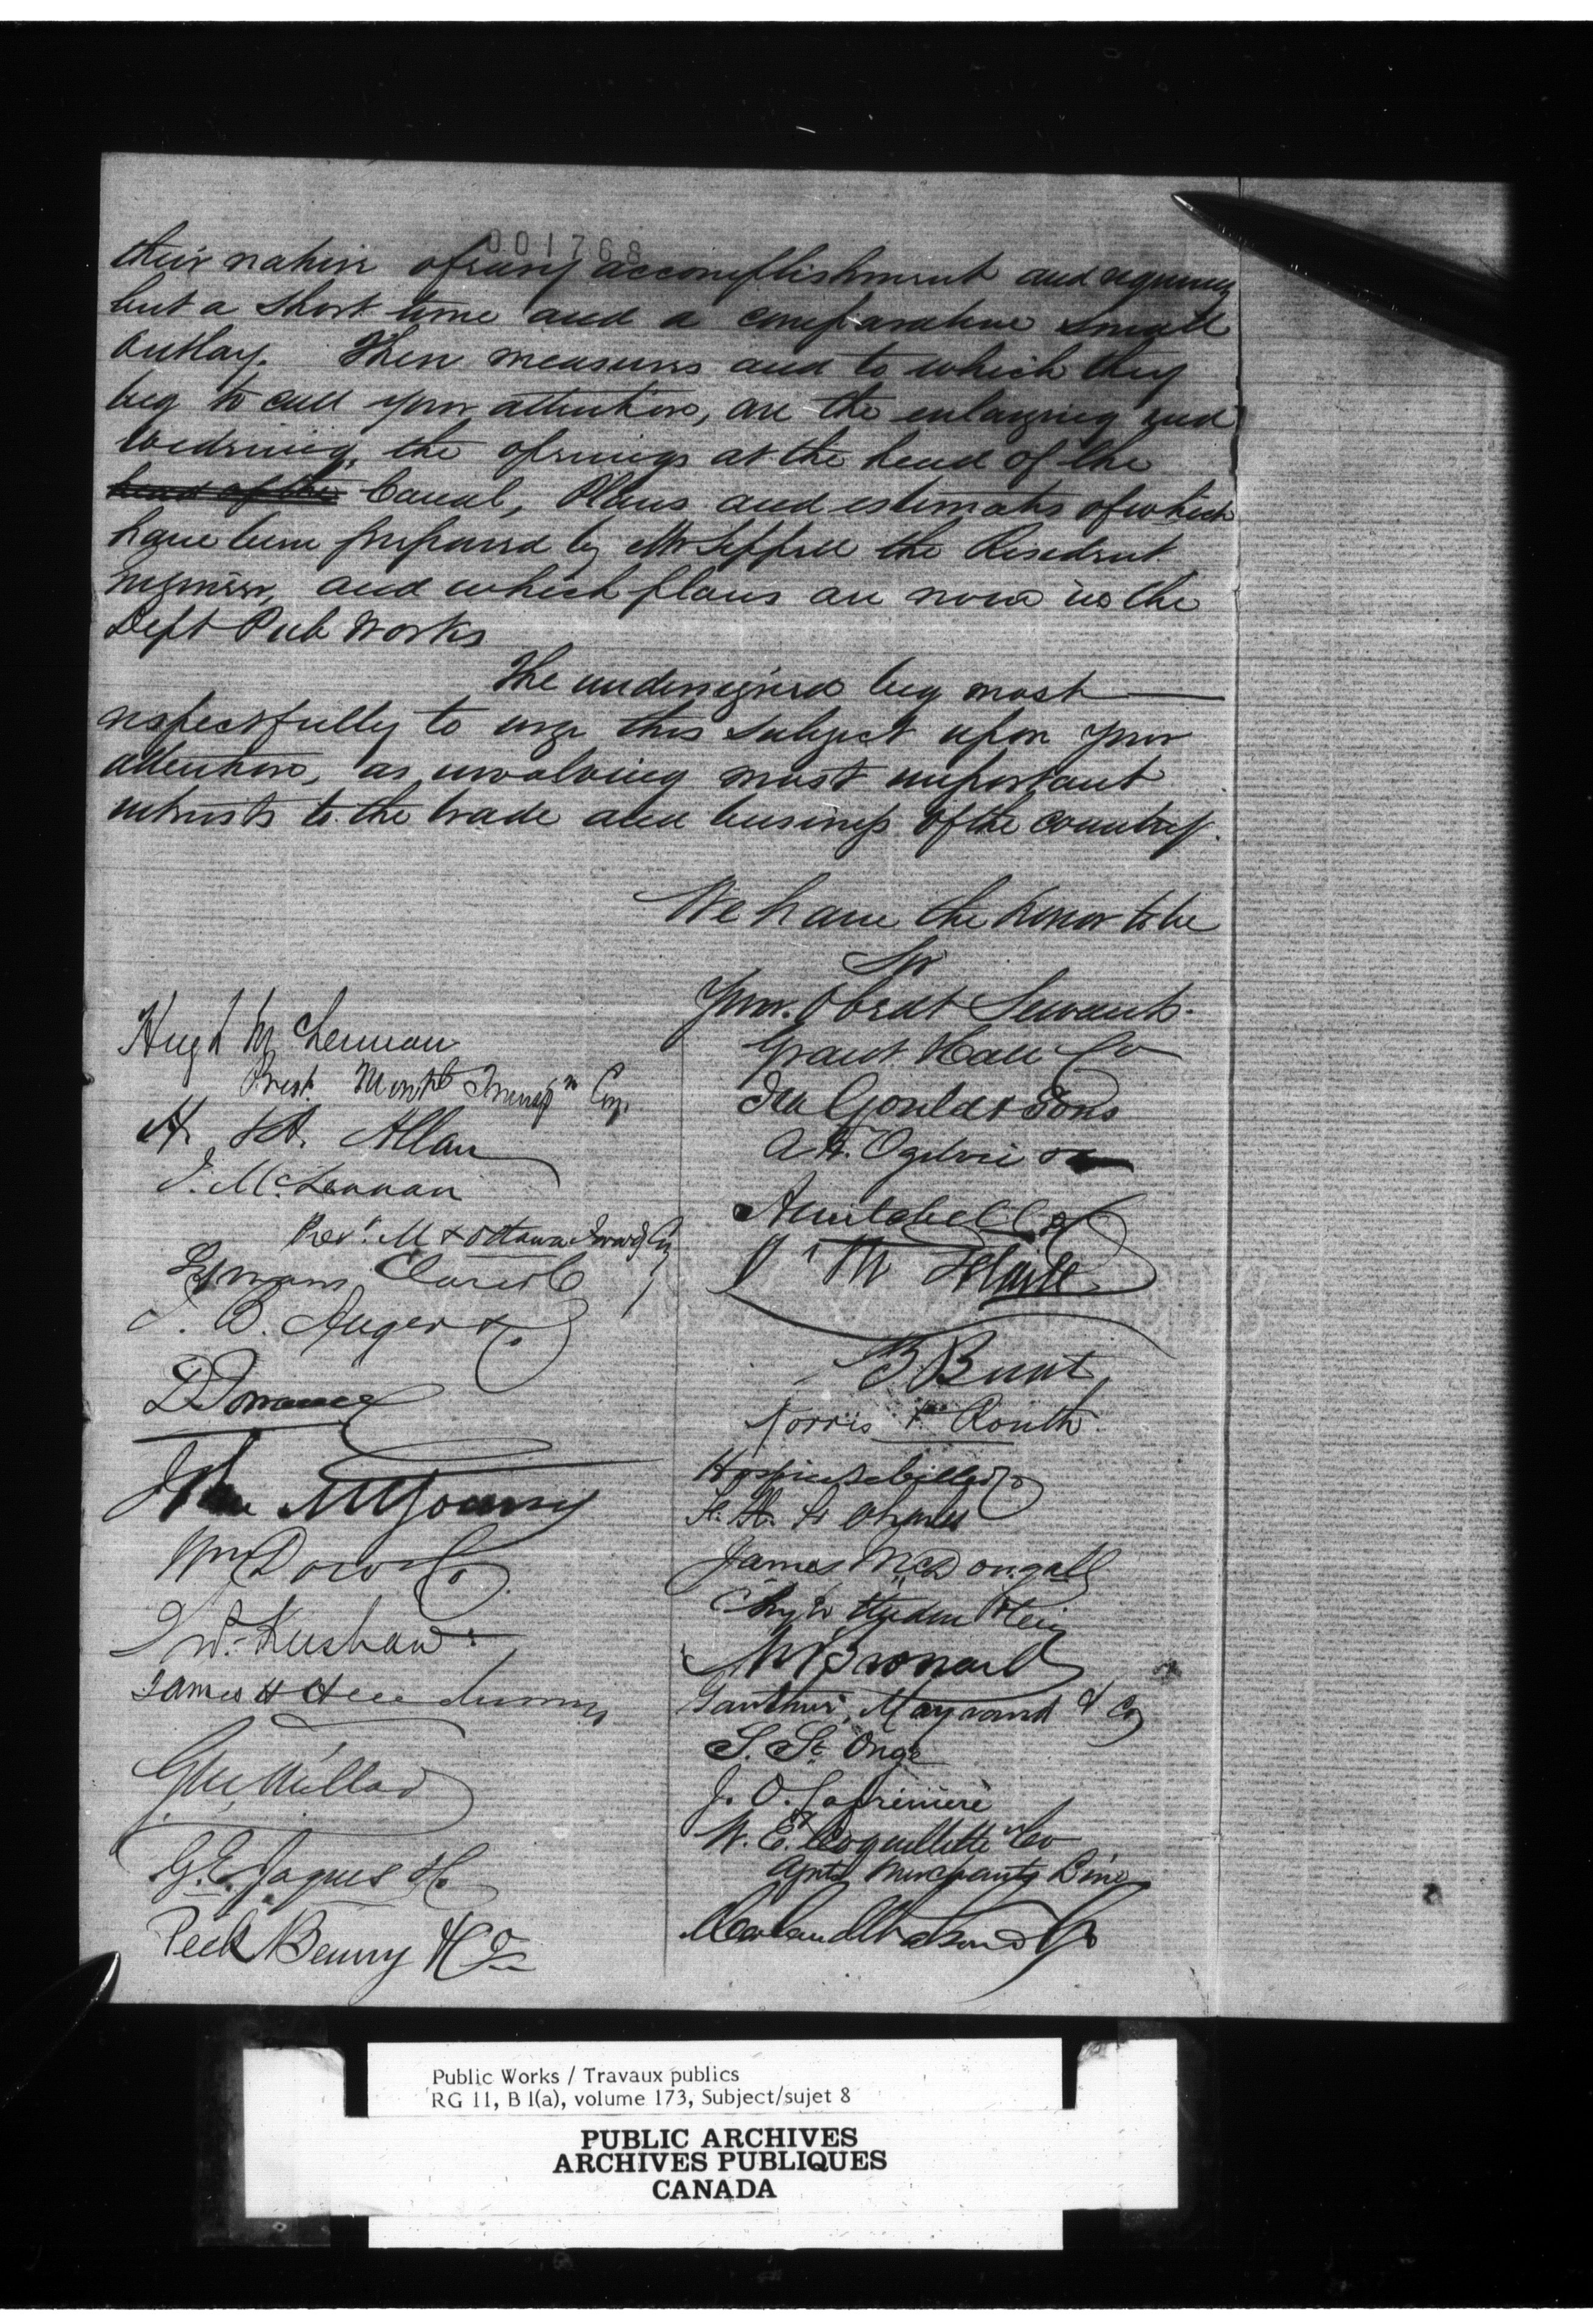 001768
their nature of easy accomplishment and requiring
but a short time and a comparative small
outlay. These measures and to which they
beg to call your attention, are the enlarging and
widening, the openings at the head of the
head of the Canal, Plans and estimates of which
have been prepared by Mr Sippell the Resident
Engineer, and which plans are now in the
Dept Pub Works
The undersigned beg most
respectfully to urge this subject upon your
attention, as involving most important
interests to the trade and business of the country.
We have the honor to be
Sir
Your Obedt Servants.
Hugh McLennan
Prest. Montl Transpn Coy.
H. & A. Allan
J. McLennan
M & Ottawa Forwdg Coy
Lymans Clare & Co
J. B. Auger & Co
D Torrance
John Young
Wm Dow & Co
J W. Kershaw
James H Henderson
Geo Millar
G. E. Jaques & Co
Peck Benny & Co
Grant Hall & Co
Ira Gould & Sons
A W. Ogilvie & Co
B Bunt
Norris & Routh
Hospice Labelle & Co
F. X. St Charles
James McDougall
M Bronard
Gauthier, Maynard & Co
S. St Onge
J. O. Lafrenière
W. E. Coquillette & Co
Agnts Merchants Line
Public Works / Travaux publics
RG 11, B 1(a), volume 173, Subject/sujet 8
PUBLIC ARCHIVES
ARCHIVES PUBLIQUES
CANADA